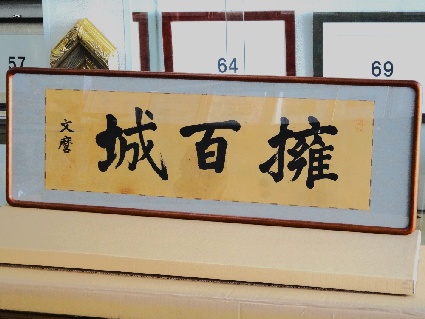 57
64
69
擁百城
文麿